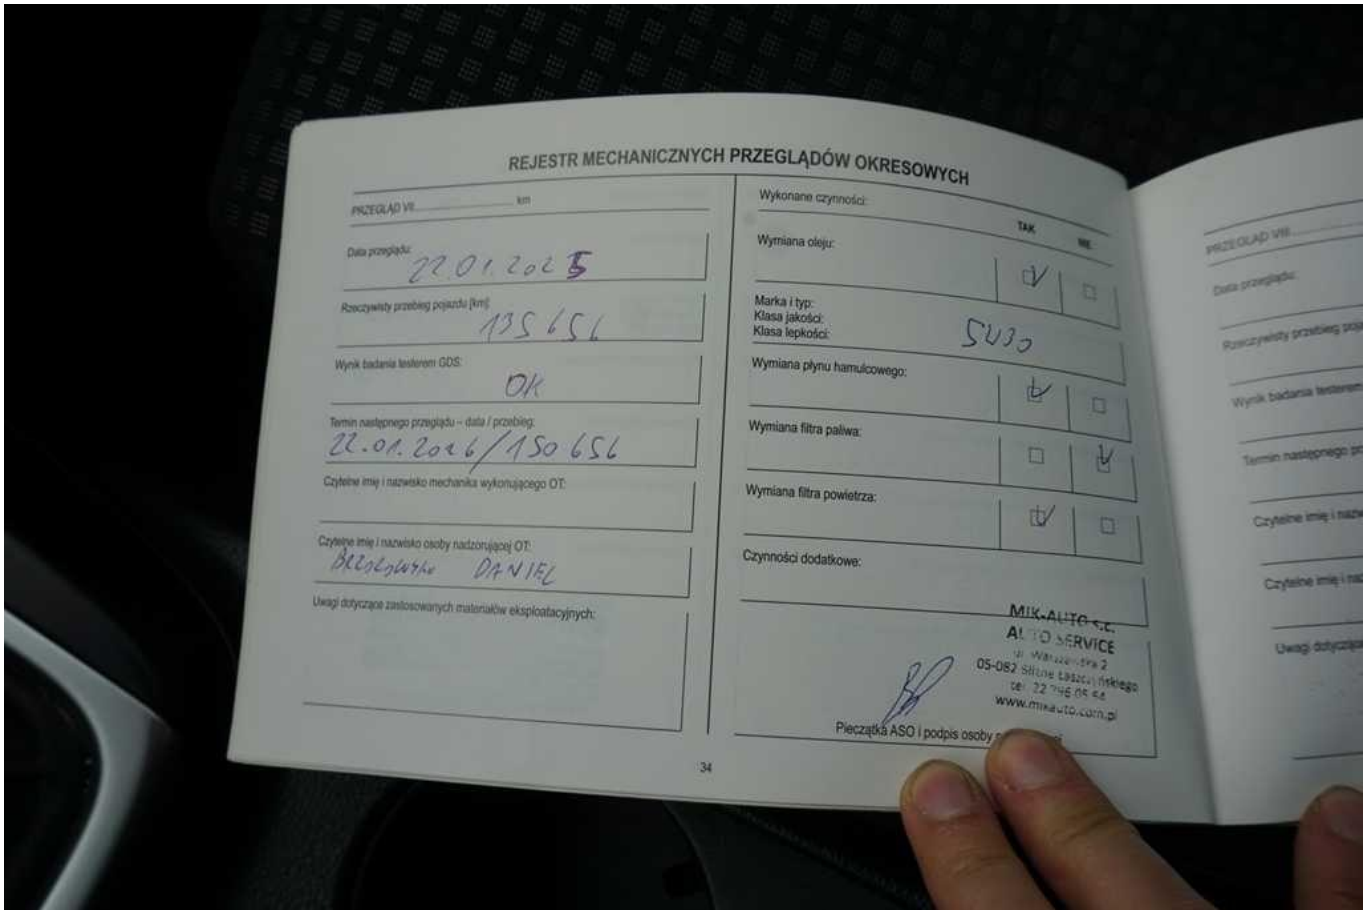 REJESTR MECHANICZNYCH PRZEGLĄDÓW OKRESOWYCH
PRZEGLĄD VII km
Data przeglądu:
22.01.2025
Rzeczywisty przebieg pojazdu [km]:
135 656
Wynik badania testerem GDS:
OK
Termin następnego przeglądu – data / przebieg:
22.01.2026/150 656
Czytelne imię i nazwisko mechanika wykonującego OT:
Czytelne imię i nazwisko osoby nadzorującej OT:
DANIEL
Uwagi dotyczące zastosowanych materiałów eksploatacyjnych:
Wykonane czynności:
TAK NIE
Wymiana oleju:
Marka i typ:
Klasa jakości:
Klasa lepkości:
5W30
Wymiana płynu hamulcowego:
Wymiana filtra paliwa:
Wymiana filtra powietrza:
Czynności dodatkowe:
MIK-AUTO s.c.
AUTO SERVICE
ul. Warszawska 2
05-082 Łaszczyńskiego
tel. 22
www.mikauto.com.pl
Pieczątka ASO i podpis osoby
34
PRZEGLĄD VIII
Data przeglądu:
Rzeczywisty przebieg
Wynik badania testerem
Termin następnego
Czytelne imię i
Czytelne imię i
Uwagi